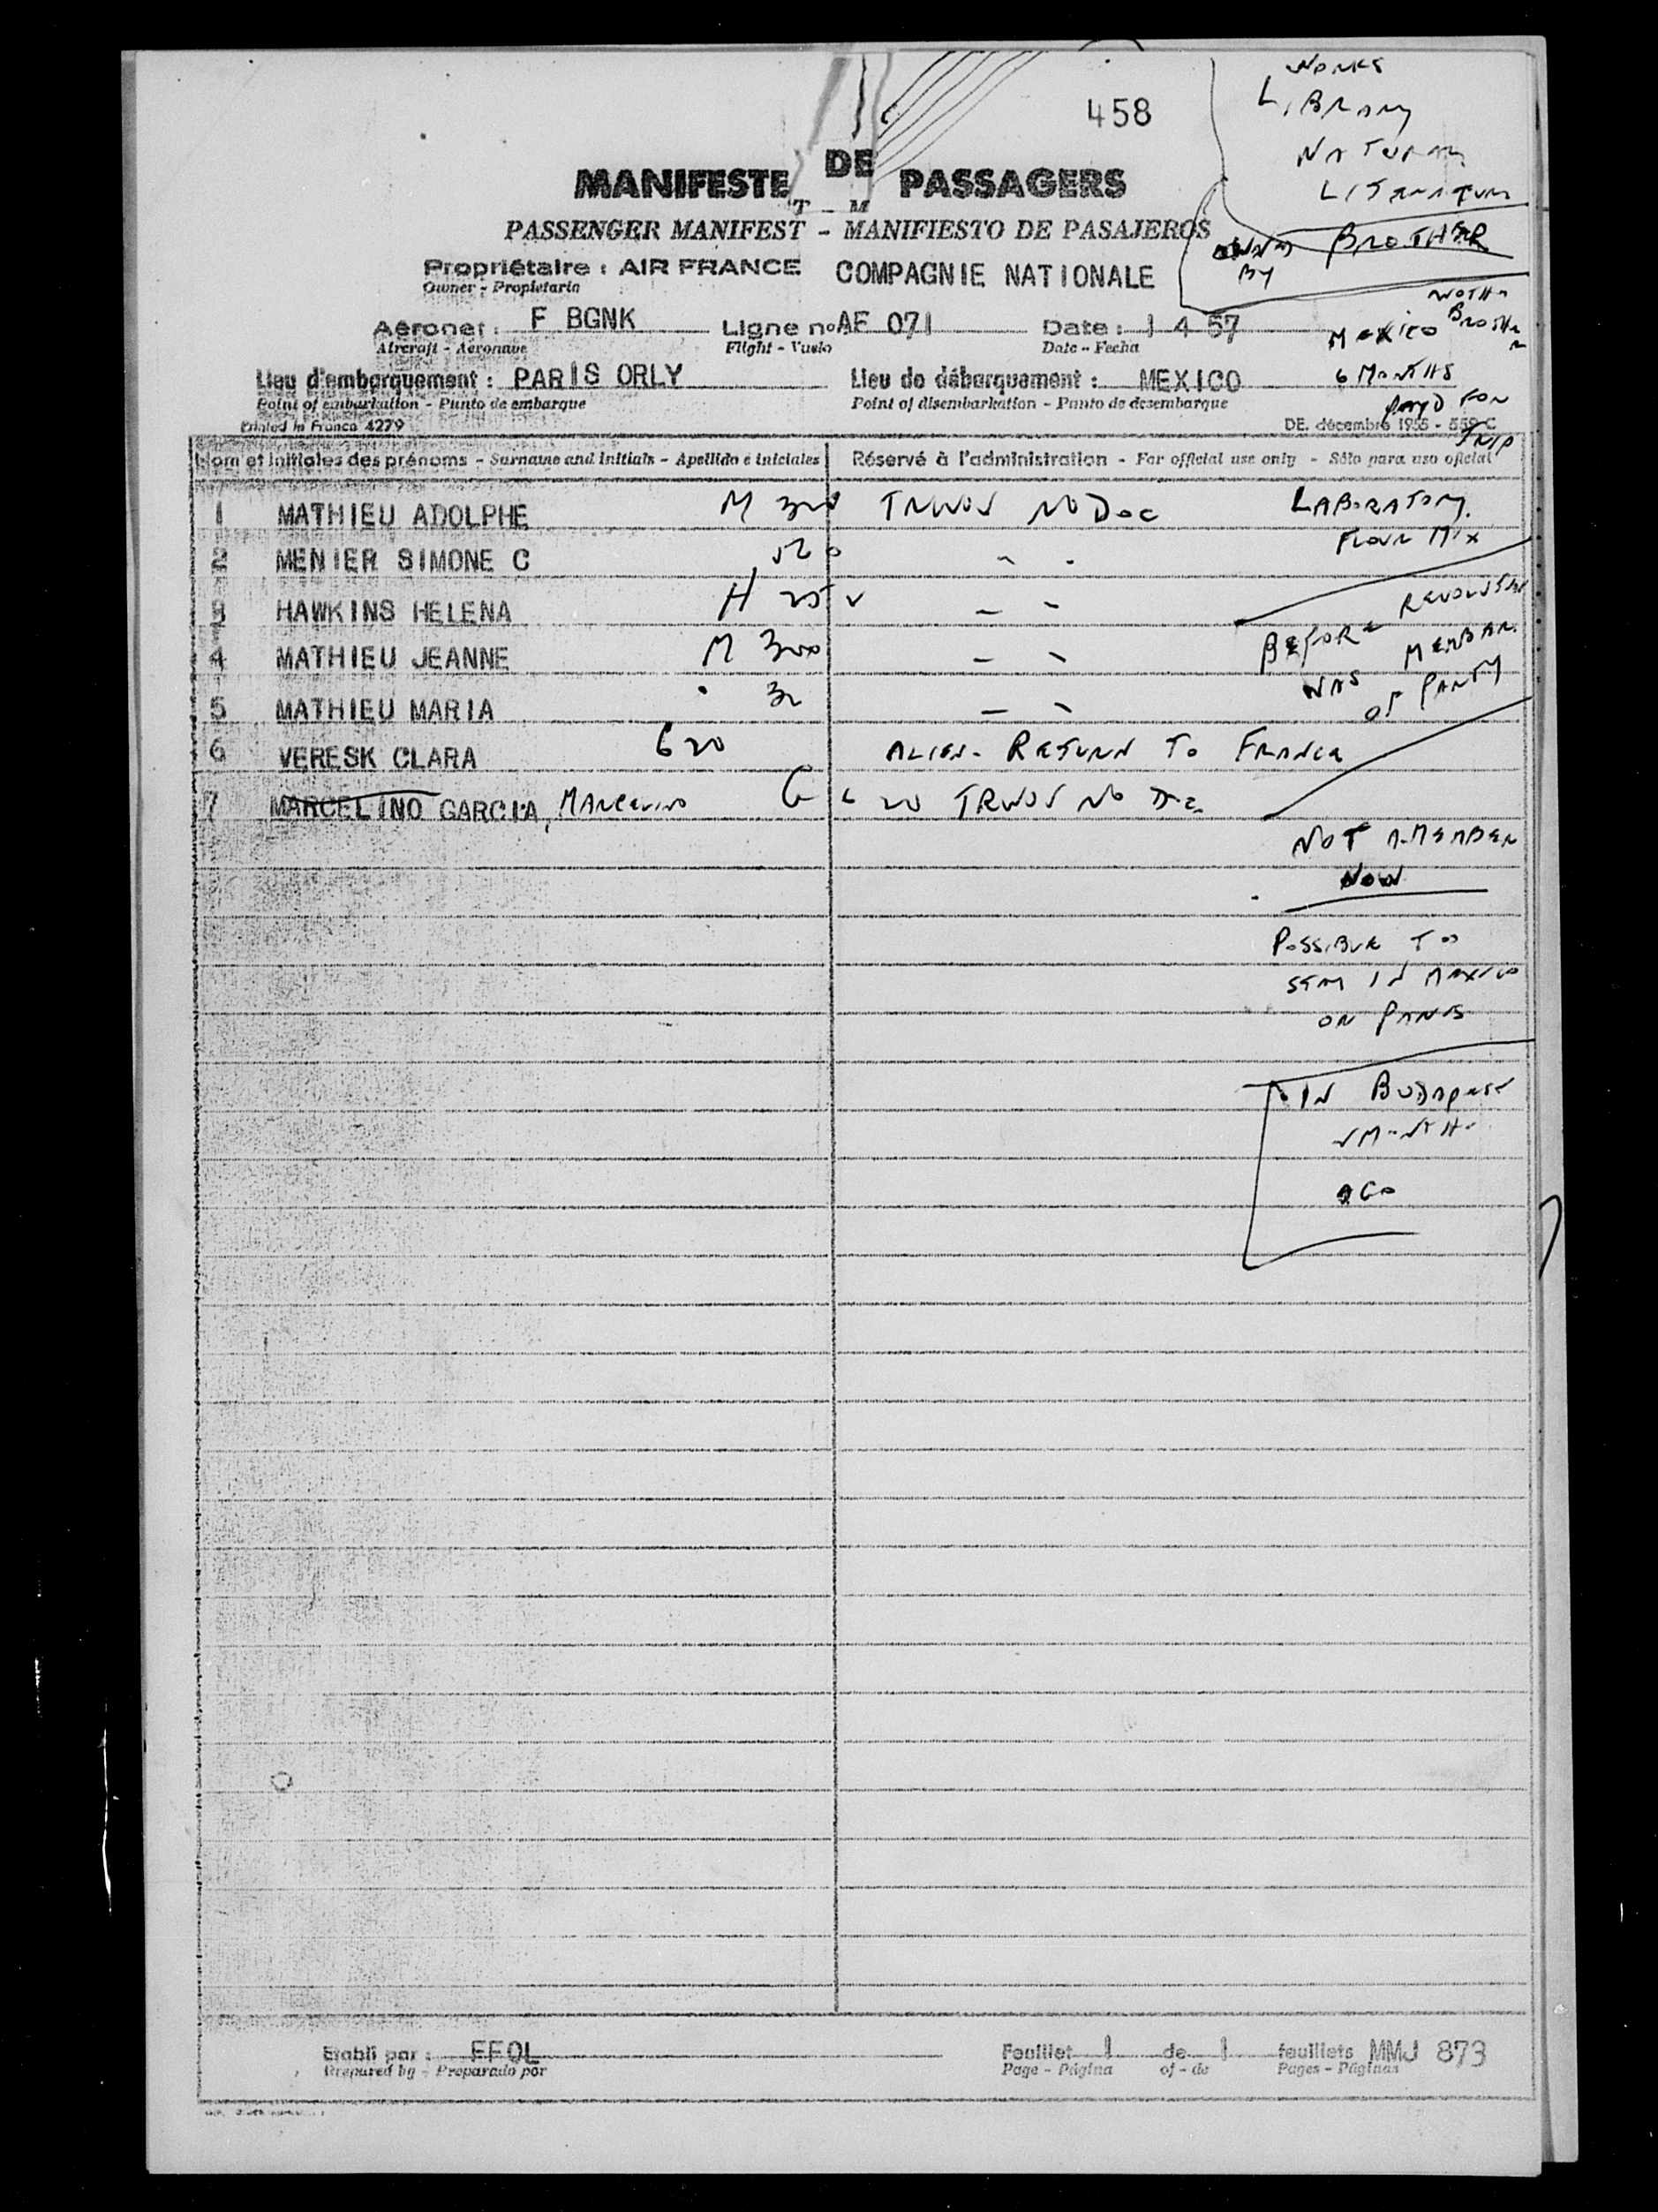 WORKS
LIBRARY
NATURAL
LITERATURE
OWNED BROTHER
BY
458
MANIFESTE DE PASSAGERS
T - M
PASSENGER MANIFEST - MANIFIESTO DE PASAJEROS
Propriétaire : AIR FRANCE COMPAGNIE NATIONALE
Owner - Propietario
MOTHER
BROTHER
MEXICO
6 MONTHS
PAYD FOR
TRIP
Aéronef : F BGNK Ligne no AF 071 Date : 1 4 57
Aircraft - Aeronave Flight - Vuelo Date - Fecha
Lieu d'embarquement : PARIS ORLY Lieu de débarquement : MEXICO
Point of embarkation - Punto de embarque Point of disembarkation - Punto de desembarque
Printed in France 4279 DE. décembre 1955 - 559 C
Nom et initiales des prénoms - Surname and initials - Apellido e iniciales Réservé à l'administration - For official use only - Sólo para uso oficial
1 MATHIEU ADOLPHE M 300 TRWOV NO DOC
2 MENIER SIMONE C 520
3 HAWKINS HELENA H 25
4 MATHIEU JEANNE M 300
5 MATHIEU MARIA
6 VERESK CLARA 620 ALIEN - RETURN TO FRANCE
7 MARCELINO GARCIA, MARCELINO G 620 TRWOV NO DOC
LABORATORY
FLOUR MIX
BEFORE REVOLUTION
WAS MEMBER
OF PARTY
NOT A MEMBER
NOW
POSSIBLE TO
STAY IN MEXICO
OR PARIS
IN BUDAPEST
MONTHS
AGO
Etabli par : FFOL Feuillet 1 de 1 feuillets MMJ 873
Prepared by - Preparado por Page - Página of - de Pages - Páginas